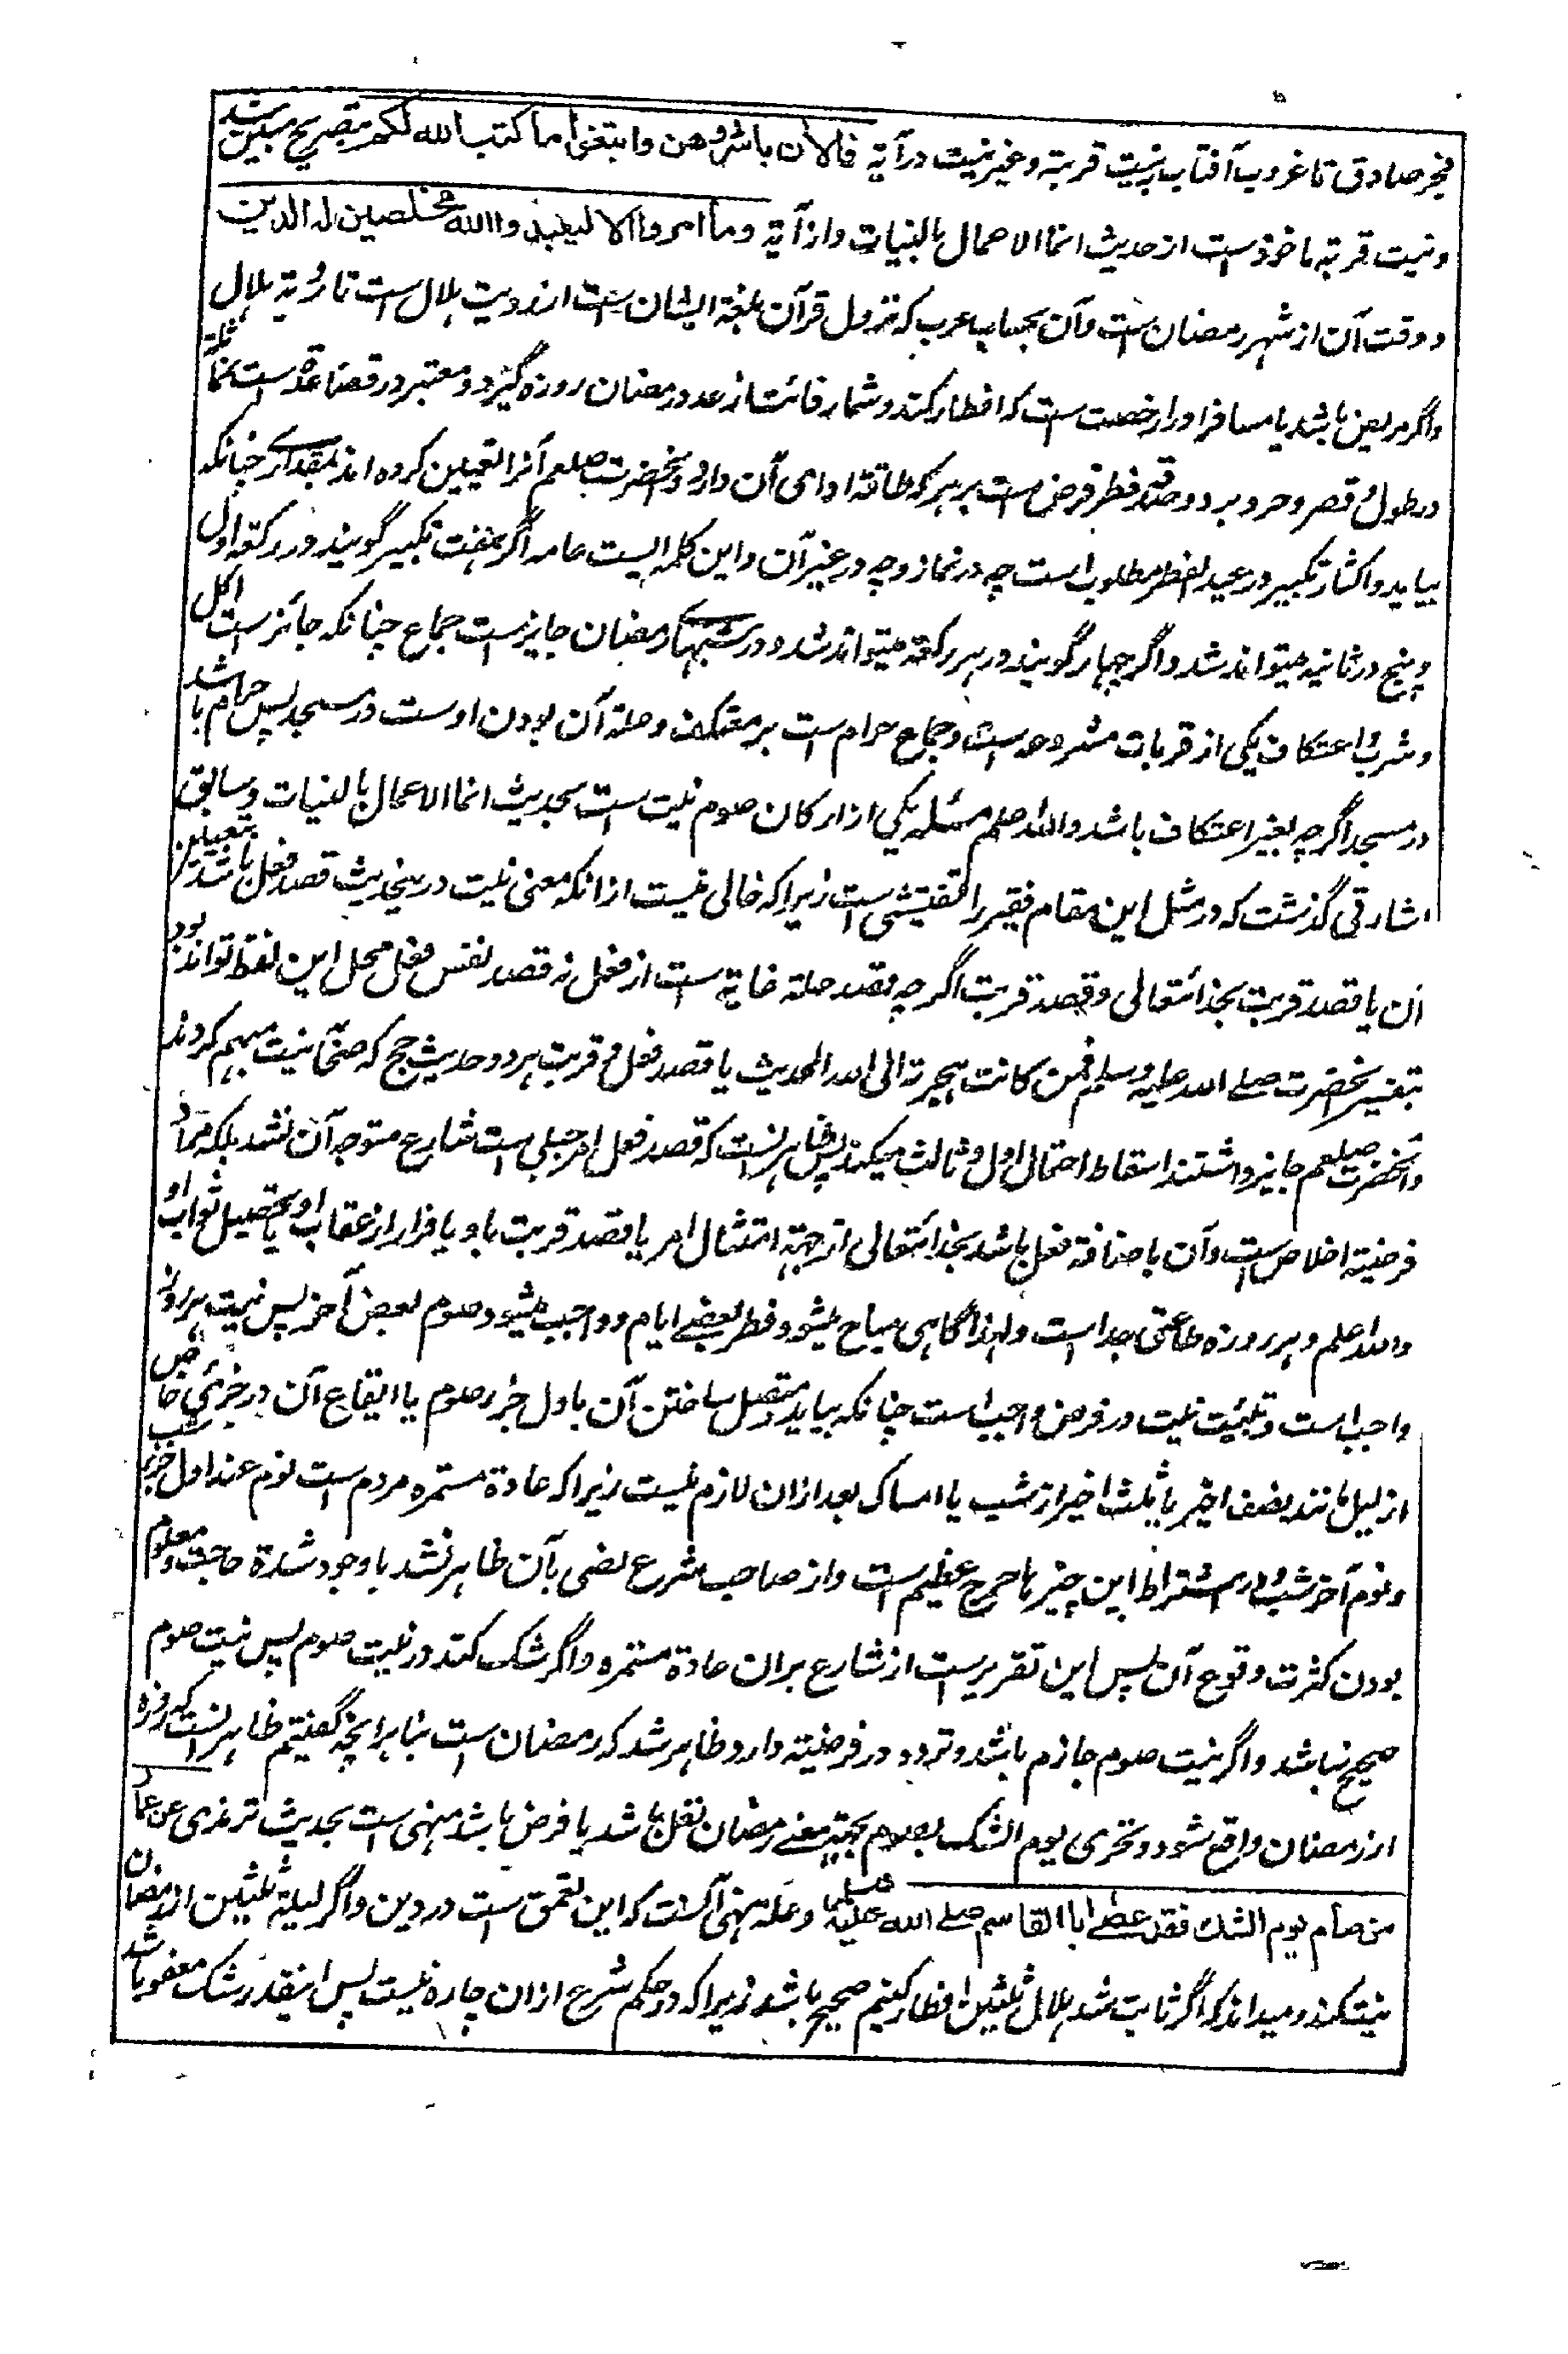 فجر صادق تا غروب آفتاب بنیت قربة و خیر نیت در آیة فالان باشروهن وابتغوا ما کتب الله لکم بتصریح مبین شد
و نیت قربة ماخوذ است از حدیث انما الاعمال بالنیات و از آیة وما امروا الا لیعبدوا الله مخلصین له الدین
و وقت آن از شهر رمضان ست و آن بحساب عرب که نزول قرآن بلغة ایشان ست از رویت هلال است تا رؤیة هلال
و اگر مریض باشد یا مسافر او را رخصت ست که افطار کند و شمار فائت از عدد رمضان روزه گیرد و معتبر در قضا عدة ست نه
در طول و قصر و حر و برد و صدقه فطر فرض ست بر هر که طاقة ادای آن دارد و آنحضرت صلعم آنرا تعیین کرده اند بمقداری چنانکه
بیاید و اکثار تکبیر در عید الفطر مطلوب است چه در نماز و چه در غیر آن و این کلمه ایست عامه اگر هفت تکبیر گویند در رکعة اولی
و پنج در ثانیه میتواند شد و اگر چهار گویند در هر رکعة میتواند شد و در شبهای رمضان جایز ست جماع چنانکه جائز ست اکل
و شرب و اعتکاف یکی از قربات مشروعه ست و جماع حرام ست بر معتکف و علة آن بودن اوست در مسجد پس حرام باشد
در مسجد اگرچه بغیر اعتکاف باشد والله اعلم مسئله یکی از ارکان صوم نیت ست بحدیث انما الاعمال بالنیات و سابق
اشارتی گذشت که در مثل این مقام فقیر را تفتیشی است زیرا که خالی نیست از آنکه معنی نیت درینحدیث قصد فعل باشد بتعیین
آن یا قصد قربت بخدا تعالی و قصد قربت اگرچه قصد علة غایة ست از فعل نه قصد نفس فعل محمل این لفظ تواند بود
بتفسیر آنحضرت صلے الله علیه وسلم فمن کانت هجرته الی الله الحدیث یا قصد فعل و قربت هر دو و حدیث حج که صحابه نیت مبهم کردند
و آنحضرت صلعم جایز داشتند اسقاط احتمال اول و ثالث میکند پس ظاهر آنست که قصد فعل امر جبلی ست شارع متوجه آن نشد بلکه مراد
فرضیة اخلاص ست و آن باضافة فعل باشد بخدا تعالی از جهة امتثال امر یا قصد قربت باو یا فرار از عقاب او یا تحصیل ثواب او
والله اعلم و هر روزه طاعتی جداست و لهذا گاهی مباح میشود فطر بعضے ایام و واجب میشود صوم بعض آخر پس نیت هر روز
واجب است و تبئیت نیت در فرض واجب است چنانکه بیاید و متصل ساختن آن باول جزء صوم یا ایقاع آن در جزئی خاص
از لیل مانند نصف اخیر یا ثلث اخیر از شب یا امساک بعد ازان لازم نیست زیرا که عادة مستمره مردم ست نوم عند اول جزء شب
و نوم آخر شب و در اشتراط این چیزها حرج عظیم ست و از صاحب شرع نصی بآن ظاهر نشد باوجود شدة حاجت و معلوم
بودن کثرت وقوع آن پس این تقریر ست از شارع بران عادة مستمره و اگر شک کند در نیت صوم پس نیت صوم
صحیح نباشد و اگر بنیت صوم جازم باشد و تردد در فرضیة دارد و ظاهر شد که رمضان است بنا برانچه گفتیم ظاهر آنست که روزه
از رمضان واقع شود و تحری یوم الشک بصوم بجهة معنے رمضان نفل باشد یا فرض باشد منهی ست بحدیث ترمذی عن عمار
من صام یوم الشك فقد عصے ابا القاسم صلے الله علیه وسلم و علة نهی آنست که این تعمق ست در دین و اگر لیلة ثلثین از رمضان
نیت کند و میداند که اگر ثابت شد هلال ثلثین افطار کنیم صحیح باشد زیرا که در حکم شرع ازان چاره نیست پس اینقدر شک معفو باشد